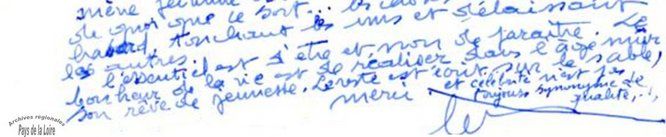 de quoi que ce soit...
hasard, touchant les uns et délaissant
les autres.
l'essentiel est d'être et non de paraître. Le
bonheur de la vie est de réaliser dans l'âge mûr
son rêve de jeunesse. Le reste est sur le sable,
et célébrité n'est pas
toujours synonyme de
qualité...
merci
Archives régionales
Pays de la Loire